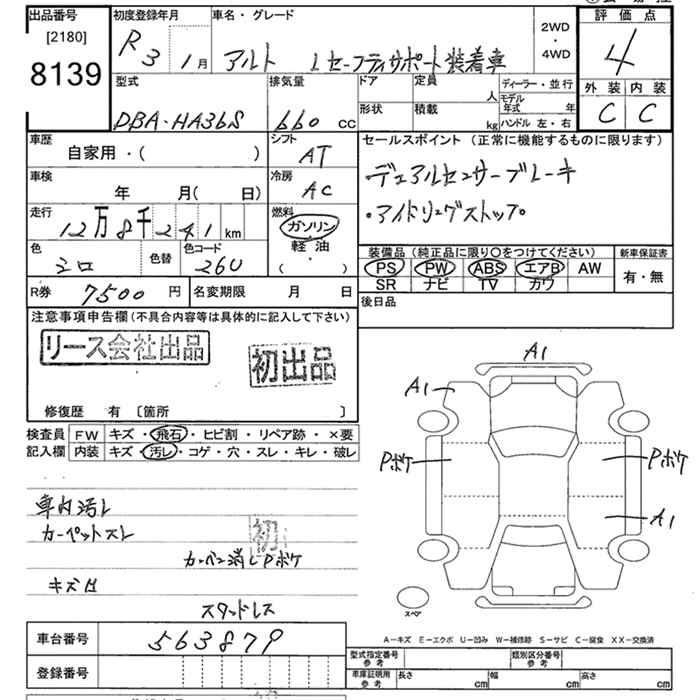 出品番号
[2180]
8139
初度登録年月
R3 1月
車名・グレード
アルト Lセーフティサポート装着車
2WD
・
4WD
評価点
4
外装 内装
C C
型式
DBA-HA36S
排気量
660 cc
ドア
定員
人
形状
積載
kg
ディーラー・並行
モデル年式 年
ハンドル 左・右
車歴
自家用・( )
シフト
AT
車検
年 月( 日)
冷房
AC
走行
12万8千241km
燃料
ガソリン
軽油
( )
色
シロ
色替
色コード
26U
セールスポイント(正常に機能するものに限ります)
・デュアルセンサーブレーキ
・アイドリングストップ
装備品(純正品に限り○をつけてください)
PS PW ABS エアB AW
SR ナビ TV カワ
新車保証書
有・無
R券 7500円
名変期限 月 日
後日品
注意事項申告欄(不具合内容等は具体的に記入して下さい)
リース会社出品
初出品
修復歴 有 〔箇所 〕
検査員
記入欄
FW キズ・飛石・ヒビ割・リペア跡・×要
内装 キズ・汚レ・コゲ・穴・スレ・キレ・破レ
車内汚レ
カーペットスレ
初
カッペン消しPボケ
キズ凹
スタッドレス
A1
A1
Pボケ
Pボケ
A1
スペア
A-キズ E-エクボ U-凹み W-補修跡 S-サビ C-腐食 XX-交換済
車台番号 563879
登録番号
型式指定番号
参考
類別区分番号
参考
車庫証明用
参考
長さ cm
幅 cm
高さ cm